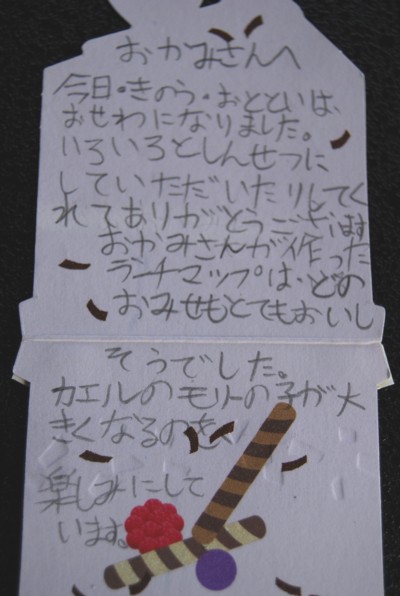 おかみさんへ
今日・きのう・おとといは、
おせわになりました。
いろいろとしんせつに
していただいたりしてく
れてありがとうございます
おかみさんが作った
ラーチマップは、どの
おみせもとてもおいし
そうでした。
カエルのモリーの子が大
きくなるのを、
楽しみにして
います。